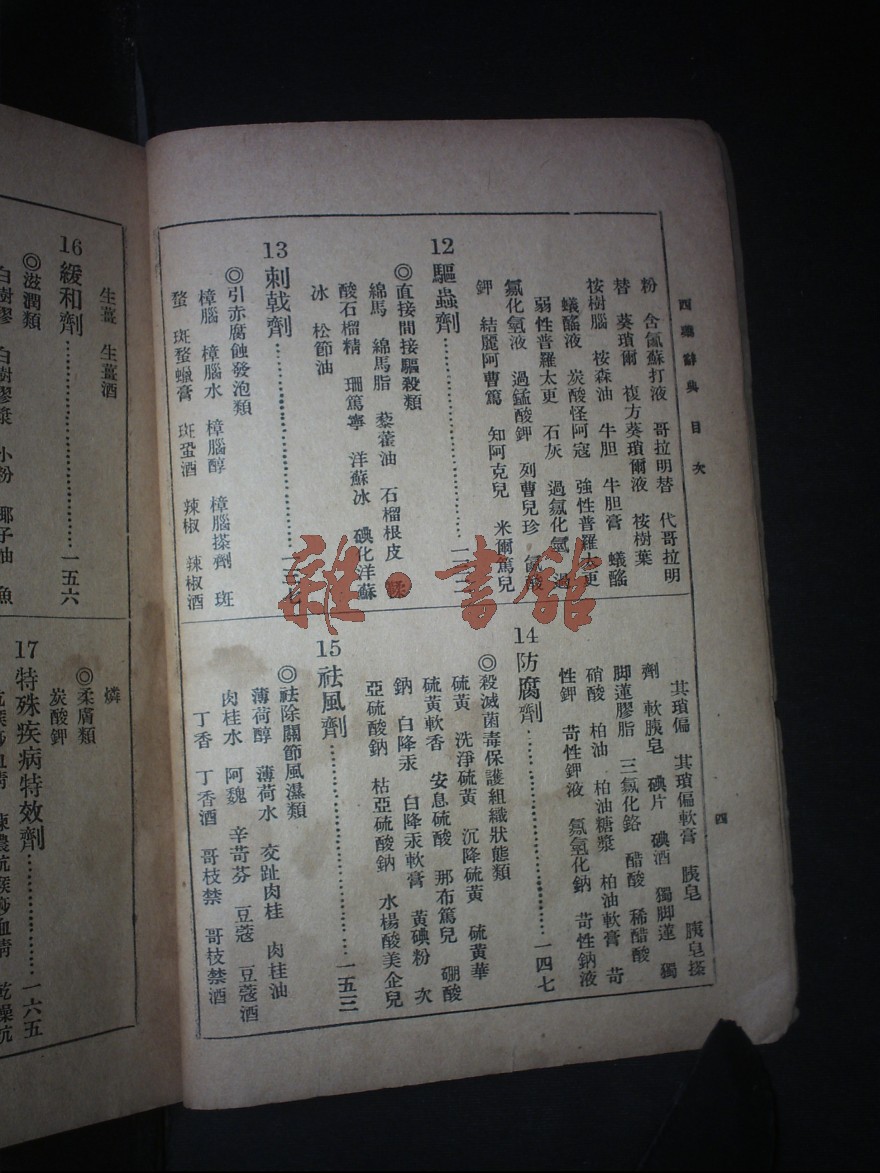 西藥辭典 目次
四
粉 含氯蘇打液 哥拉明替 代哥拉明
替 葵瑣爾 複方葵瑣爾液 桉樹葉
桉樹腦 桉森油 牛胆 牛胆膏 蟻醛
蟻醛液 炭酸怪阿寇 強性普羅太更
弱性普羅太更 石灰 過氯化氫 過
氯化氫液 過錳酸鉀 列曹兒珍 氯酸
鉀 結麗阿曹篤 知阿克兒 米爾篤兒
12 驅蟲劑
◎直接間接驅殺類
綿馬 綿馬脂 藜藿油 石榴根皮
酸石榴精 珊篤寧 洋蘇冰 碘化洋蘇
冰 松節油
13 刺戟劑 一三七
◎引赤腐蝕發泡類
樟腦 樟腦水 樟腦醇 樟腦搽劑 斑
蝥 斑蝥蠟膏 斑蝥酒 辣椒 辣椒酒
其瑣偏 其瑣偏軟膏 胰皂 胰皂搽
劑 軟胰皂 碘片 碘酒 獨脚蓮 獨
脚蓮膠脂 三氯化鉻 醋酸 稀醋酸
硝酸 柏油 柏油糖漿 柏油軟膏 苛
性鉀 苛性鉀液 氯氫化鈉 苛性鈉液
14 防腐劑 一四七
◎殺滅菌毒保護組織狀態類
硫黃 洗淨硫黃 沉降硫黃 硫黃華
硫黃軟香 安息硫酸 那布篤兒 硼酸
鈉 白降汞 白降汞軟膏 黃碘粉 次
亞硫酸鈉 枯亞硫酸鈉 水楊酸美企兒
15 祛風劑 一五三
◎祛除關節風濕類
薄荷醇 薄荷水 交趾肉桂 肉桂油
肉桂水 阿魏 辛苛芬 豆蔻 豆蔻酒
丁香 丁香酒 哥枝禁 哥枝禁酒
生薑 生薑酒
16 緩和劑 一五六
◎滋潤類
白樹膠 白樹膠漿 小粉 椰子油 魚
燐
◎柔膚類
炭酸鉀
17 特殊疾病特效劑 一六五
雜·書館